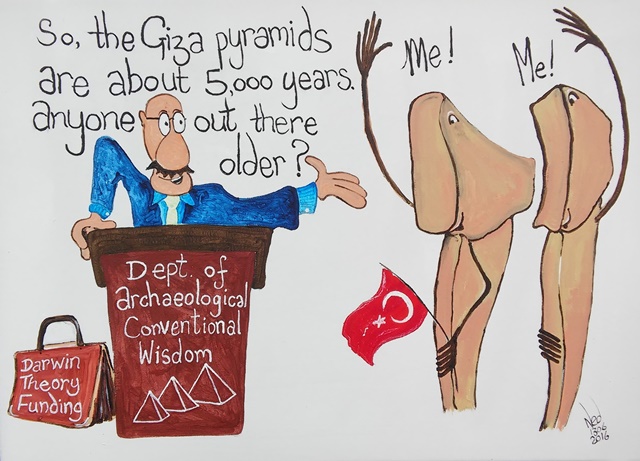 So, the Giza pyramids
are about 5,000 years.
anyone out there
older?
Me!
Me!
Dept. of
archaeological
Conventional
Wisdom
Darwin
Theory
Funding
2016